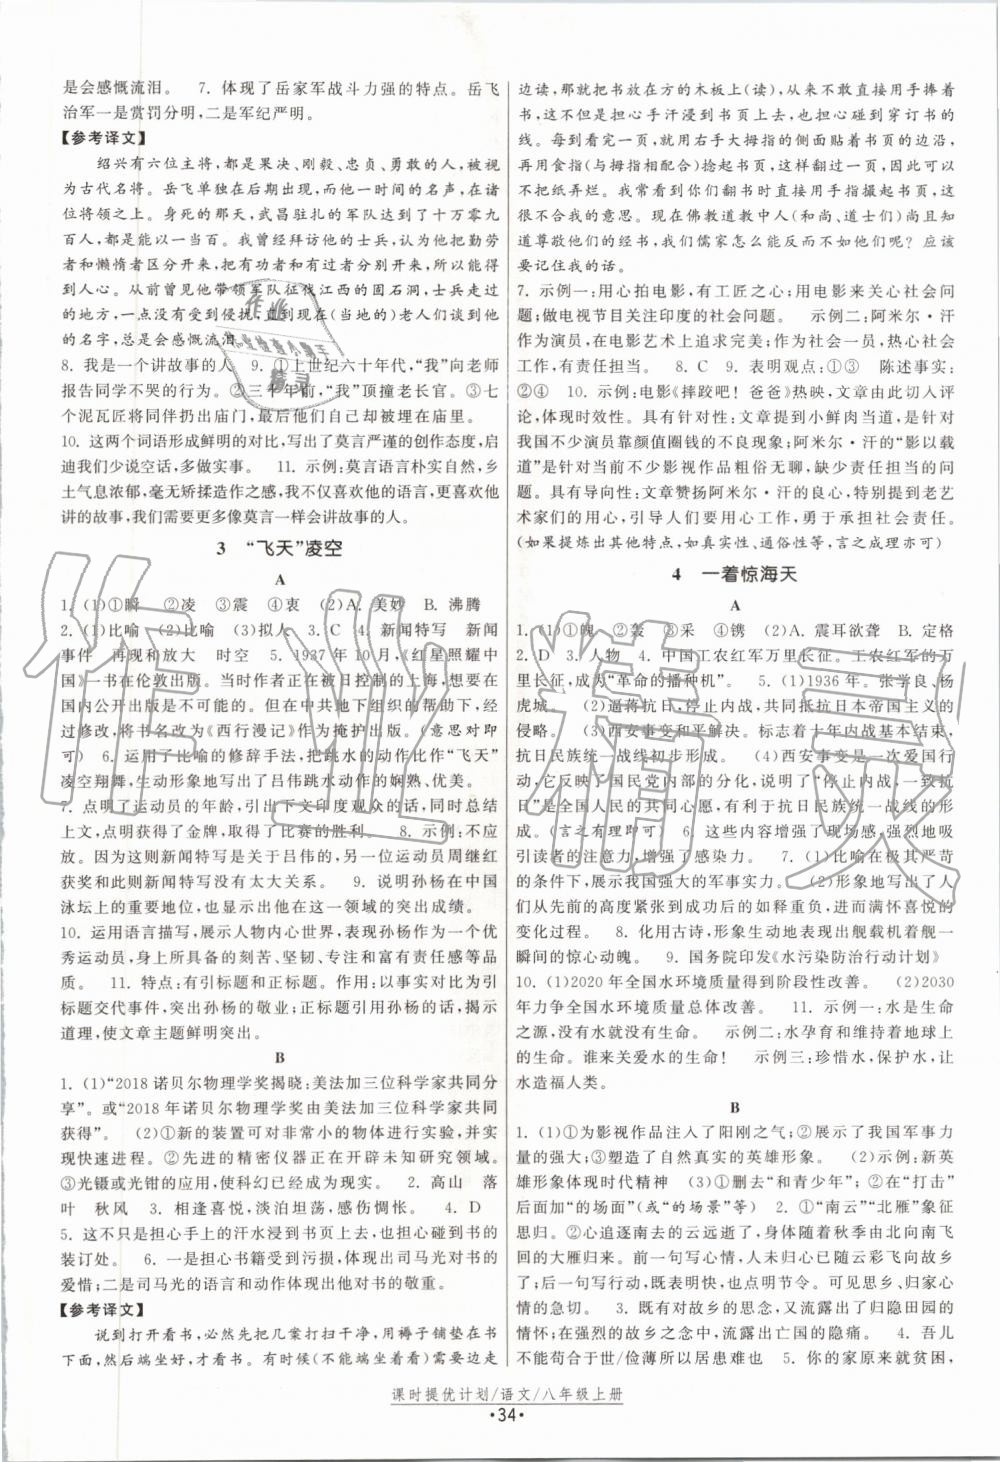 是会感慨流泪。 7. 体现了岳家军战斗力强的特点。岳飞
治军一是赏罚分明,二是军纪严明。
【参考译文】
绍兴有六位主将,都是果决、刚毅、忠贞、勇敢的人,被视
为古代名将。岳飞单独在后期出现,而他一时间的名声在诸
位将领之上。身死的那天,武昌驻扎的军队达到了十万零九
百人,都是能以一当百。我曾经拜访他的士兵,能够把勤劳
者和懒惰者区分开来,把有功者和有过者区分开来,所以能
得到人心。从前曾见到他带领军队征伐江西的固石洞,士兵走过
的地方,一点没有受到侵扰,直到现在(当地的)老人们谈到他
的名字,总是会感慨流泪。
8. 我是一个讲故事的人 9. ①上世纪六十年代,“我”向老师
报告同学不哭的行为。②三十年前,“我”顶撞老长官。③
七个泥瓦匠将同伴扔出庙门,最后他们自己却被埋在庙里。
10. 这两个词语形成鲜明的对比,写出了莫言严谨的创作态度,启
迪我们少说空话,多做实事。 11. 示例:莫言语言朴实自然,乡
土气息浓郁,毫无矫揉造作之感,我不仅喜欢他的语言,更喜欢他
讲的故事,我们需要更多像莫言一样会讲故事的人。
3 “飞天”凌空
A
1. (1)①瞬 ②凌 ③震 ④衷 (2)A. 美妙 B. 沸腾
2. (1)比喻 (2)比喻 (3)拟人 3. C 4. 新闻特写 新闻
事件 再现和放大 时空 5. 1937 年 10 月,《红星照耀中
国》一书在伦敦出版。当时作者正在被日控制的上海,想要在
国内公开出版是不可能的。但在中共地下组织的帮助下,经
过修改,将书名改为《西行漫记》作为掩护出版。(意思对即
可) 6. 运用了比喻的修辞手法,把跳水的动作比作“飞天”
凌空翔舞,生动形象地写出了吕伟跳水动作的娴熟、优美。
7. 点明了运动员的成绩,引出下文印度观众的话,同时总结
上文,点明获得了金牌,取得了比赛的胜利。 8. 示例:不应
放。因为这则新闻特写是关于吕伟的,另一位运动员周继红
获奖和此则新闻特写没有太大关系。 9. 说明孙杨在中国
泳坛上的重要地位,也显示出他在这一领域的突出成绩。
10. 运用语言描写,展示人物内心世界,表现孙杨作为一个优
秀运动员,身上所具备的刻苦、坚韧、专注和富有责任感等品
质。 11. 特点:有引标题和正标题。作用:以叙事为主的引
标题交代事件,突出孙杨的魅力;正标题引用孙杨的话,揭示
道理,使文章主题鲜明突出。
B
1. (1)“2018 诺贝尔物理学奖揭晓:美法加三位科学家共同分
享”。或“2018 年诺贝尔物理学奖由美法加三位科学家共同
获得”。 (2)①新的装置可对非常小的物体进行实验,并实
现快速进程。②先进的精密仪器正在开辟未知研究领域。
③光镊或光钳的使用,使科幻已经成为现实。 2. 高山 落
叶 秋风 3. 相逢喜悦,淡泊坦荡,感伤惆怅。 4. D
5. 这不只是担心手上的汗水浸到书页上,也担心碰到书的
装订处。 6. 一是担心书籍受到污损,体现出司马光对书的
爱惜;二是司马光的语言和动作体现出他对书的敬重。
【参考译文】
说到打开看书,必然先把几案打扫干净,用褥子铺垫在书
下面,然后端坐好,才看书。有时候(不能端坐着看)需要边走
边读,就把书放在方的木板上(读),从来不敢直接用手捧着
书,这不仅是担心手汗浸到书页,也是担心碰到穿订书的地
方。每次到看完一页,就用右手大拇指的侧面贴着书页的边沿,
再用食指(与拇指相配合)捻起书页,这样翻过一页,因此可以
不把纸弄烂。我常看到你们翻书时直接用手指撮起书页,这
很不合我的意思。现在佛教道教中人(和尚、道士们)尚且知
道尊敬他们的经书,我们儒家怎么能反而不如他们呢?应该
要记住我的话。
7. 示例一:用心拍电影,有工匠之心;用电影来关心社会问
题;做电视节目关注印度的社会问题。 示例二:阿米尔·
汗用行动,在电影艺术上追求完美;用电影反映社会问题,
承担社会责任。 8. C 9. 表明观点:①③ 陈述事实:
②④ 10. 示例:电影《摔跤吧!爸爸》热映,文章由此切入评
论,体现时效性。具有针对性:文章提到小鲜肉当道,是针对
我国不少演员靠颜值圈钱的不良现象;阿米尔·汗的“影以载
道”是针对当前不少影视作品粗俗无聊,缺少责任担当的问题。
具有导向性:文章赞扬阿米尔·汗的良心,特别提到老艺
术家们的用心,引导人们要用心工作,勇于承担社会责任。
(如果提炼出其他特点,如真实性、通俗性等,言之成理亦可)
4 一着惊海天
A
1. (1)①魄 ②轰 ③采 ④镌 (2)A. 震耳欲聋 B. 定格
2. D 3. 人物 4. 中国工农红军万里长征。工农红军的万
里长征,在于“革命的播种机”。 5. (1)1936 年。张学良、杨
虎城。 (2)逼蒋抗日,停止内战,共同抵抗日本帝国主义的
侵略。 (3)西安事变的和平解决。标志着十年内战基本结束,
抗日民族统一战线初步形成。 (4)西安事变是一次爱国行
动,它反映了国民党内部的分化,说明了“停止内战,一致抗
日”是全国人民的共同心愿,有利于抗日民族统一战线的形
成。(言之有理即可) 6. 这些内容增强了现场感,强烈地吸
引读者的注意力,增强了感染力。 7. (1)比喻在极其严苛
的条件下,展示我国强大的军事实力。 (2)形象地写出了人
们从先前的高度紧张到成功后的如释重负,进而满怀喜悦的
变化过程。 8. 化用古诗,形象生动地表现出舰载机着舰一
瞬间的惊心动魄。 9. 国务院印发《水污染防治行动计划》
10. (1)2020 年全国水环境质量得到阶段性改善。 (2)2030
年力争全国水环境质量总体改善。 11. 示例一:水是生命
之源,没有水就没有生命。 示例二:水孕育和维持着地球上
的生命。谁来关爱水的生命! 示例三:珍惜水,保护水,让
水造福人类。
B
1. (1)①为影视作品注入了阳刚之气;②展示了我国军事力
量的强大;③塑造了自然真实的英雄形象。 (2)示例:新英
雄形象体现时代精神 (3)①删去“和青少年”;②在“打击”
后面加“的场面”(或“的场景”等) 2. ①“南云”“北雁”象征
思归。②心追逐南去的云远逝了,身体却随着秋季由北向南飞
回的大雁归来。③一写心情,人未动心已随云彩飞向故乡了;
一写实际行动与时间,既表明快,也点明节令。可见思乡、归家心
情的急切。 3. 既有对故乡的思念,又流露出了归隐田园的
情怀;在强烈的故乡之恋中,流露出亡国的隐痛。 4. 吾儿
不能苟合于世/俭薄所以居患难也 5. 你的家原来就贫困,
课时提优计划/语文/八年级上册
·34·
作业精灵